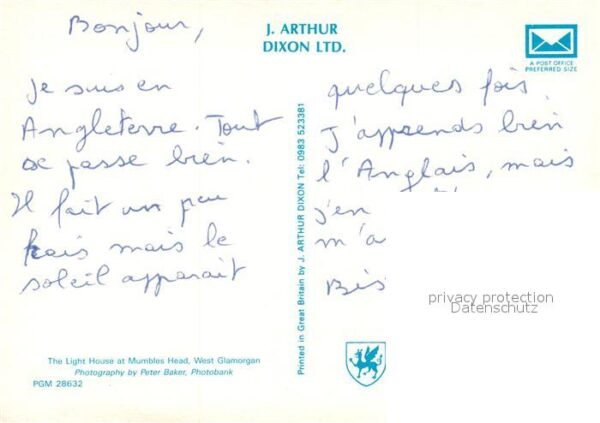 Bonjour,
J. ARTHUR
DIXON LTD.
A POST OFFICE
PREFERRED SIZE
je suis en
Angleterre. Tout
se passe bien.
Il fait un peu
frais mais le
soleil apparait
quelques fois
J'apprends bien
l'Anglais, mais
j'en
m'a
Bis
Printed in Great Britain by J. ARTHUR DIXON Tel: 0983 523381
privacy protection
Datenschutz
The Light House at Mumbles Head, West Glamorgan
Photography by Peter Baker, Photobank
PGM 28632